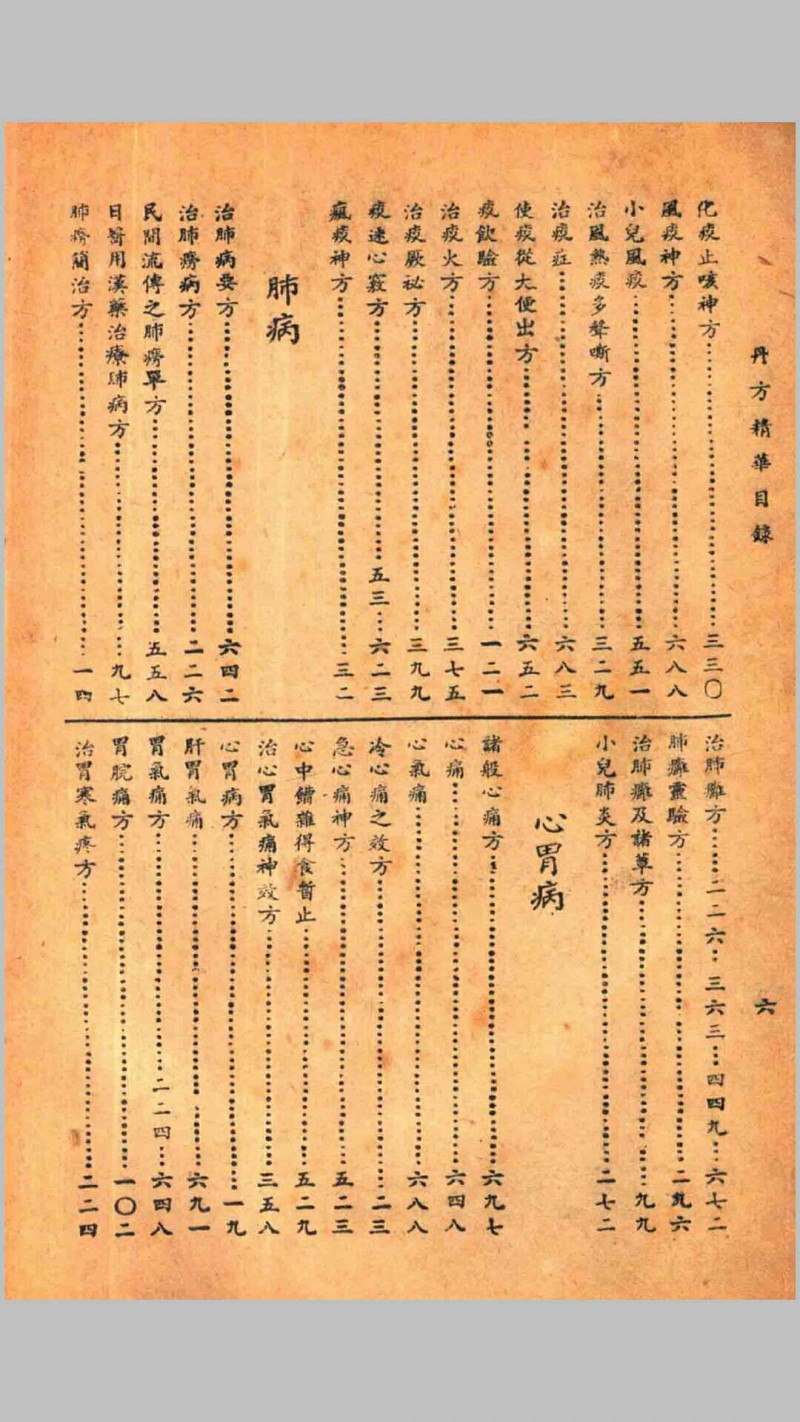 丹方精華目錄
六
化痰止咳神方……三三〇
風痰神方……六八八
小兒風痰……五五一
治風熱痰多聲嘶方……三二九
治痰症……六八三
使痰從大便出方……六五二
痰飲驗方……一二一
治痰火方……三七五
治痰厥祕方……三九九
痰迷心竅方……五三…六二三
瘋痰神方……三二
肺病
治肺病要方……六四二
治肺癆病方……二二六
民間流傳之肺癆單方……五五八
日醫用漢藥治療肺病方……九七
肺癆簡治方……一四
治肺癰方……二二六…三六三…四四九…六七二
肺癰靈驗方……二九六
治肺癰及諸草方……九九
小兒肺炎方……二七二
心胃病
諸般心痛方……六九七
心痛……六四八
心氣痛……六八八
冷心痛之效方……二三
急心痛神方……五二三
心中饋雜得食暫止……五二九
治心胃氣痛神效方……三五八
心胃病方……一九
肝胃氣痛……六九一
胃氣痛方……二二四…六四八
胃脘痛方……一〇二
治胃寒氣疼方……二二四